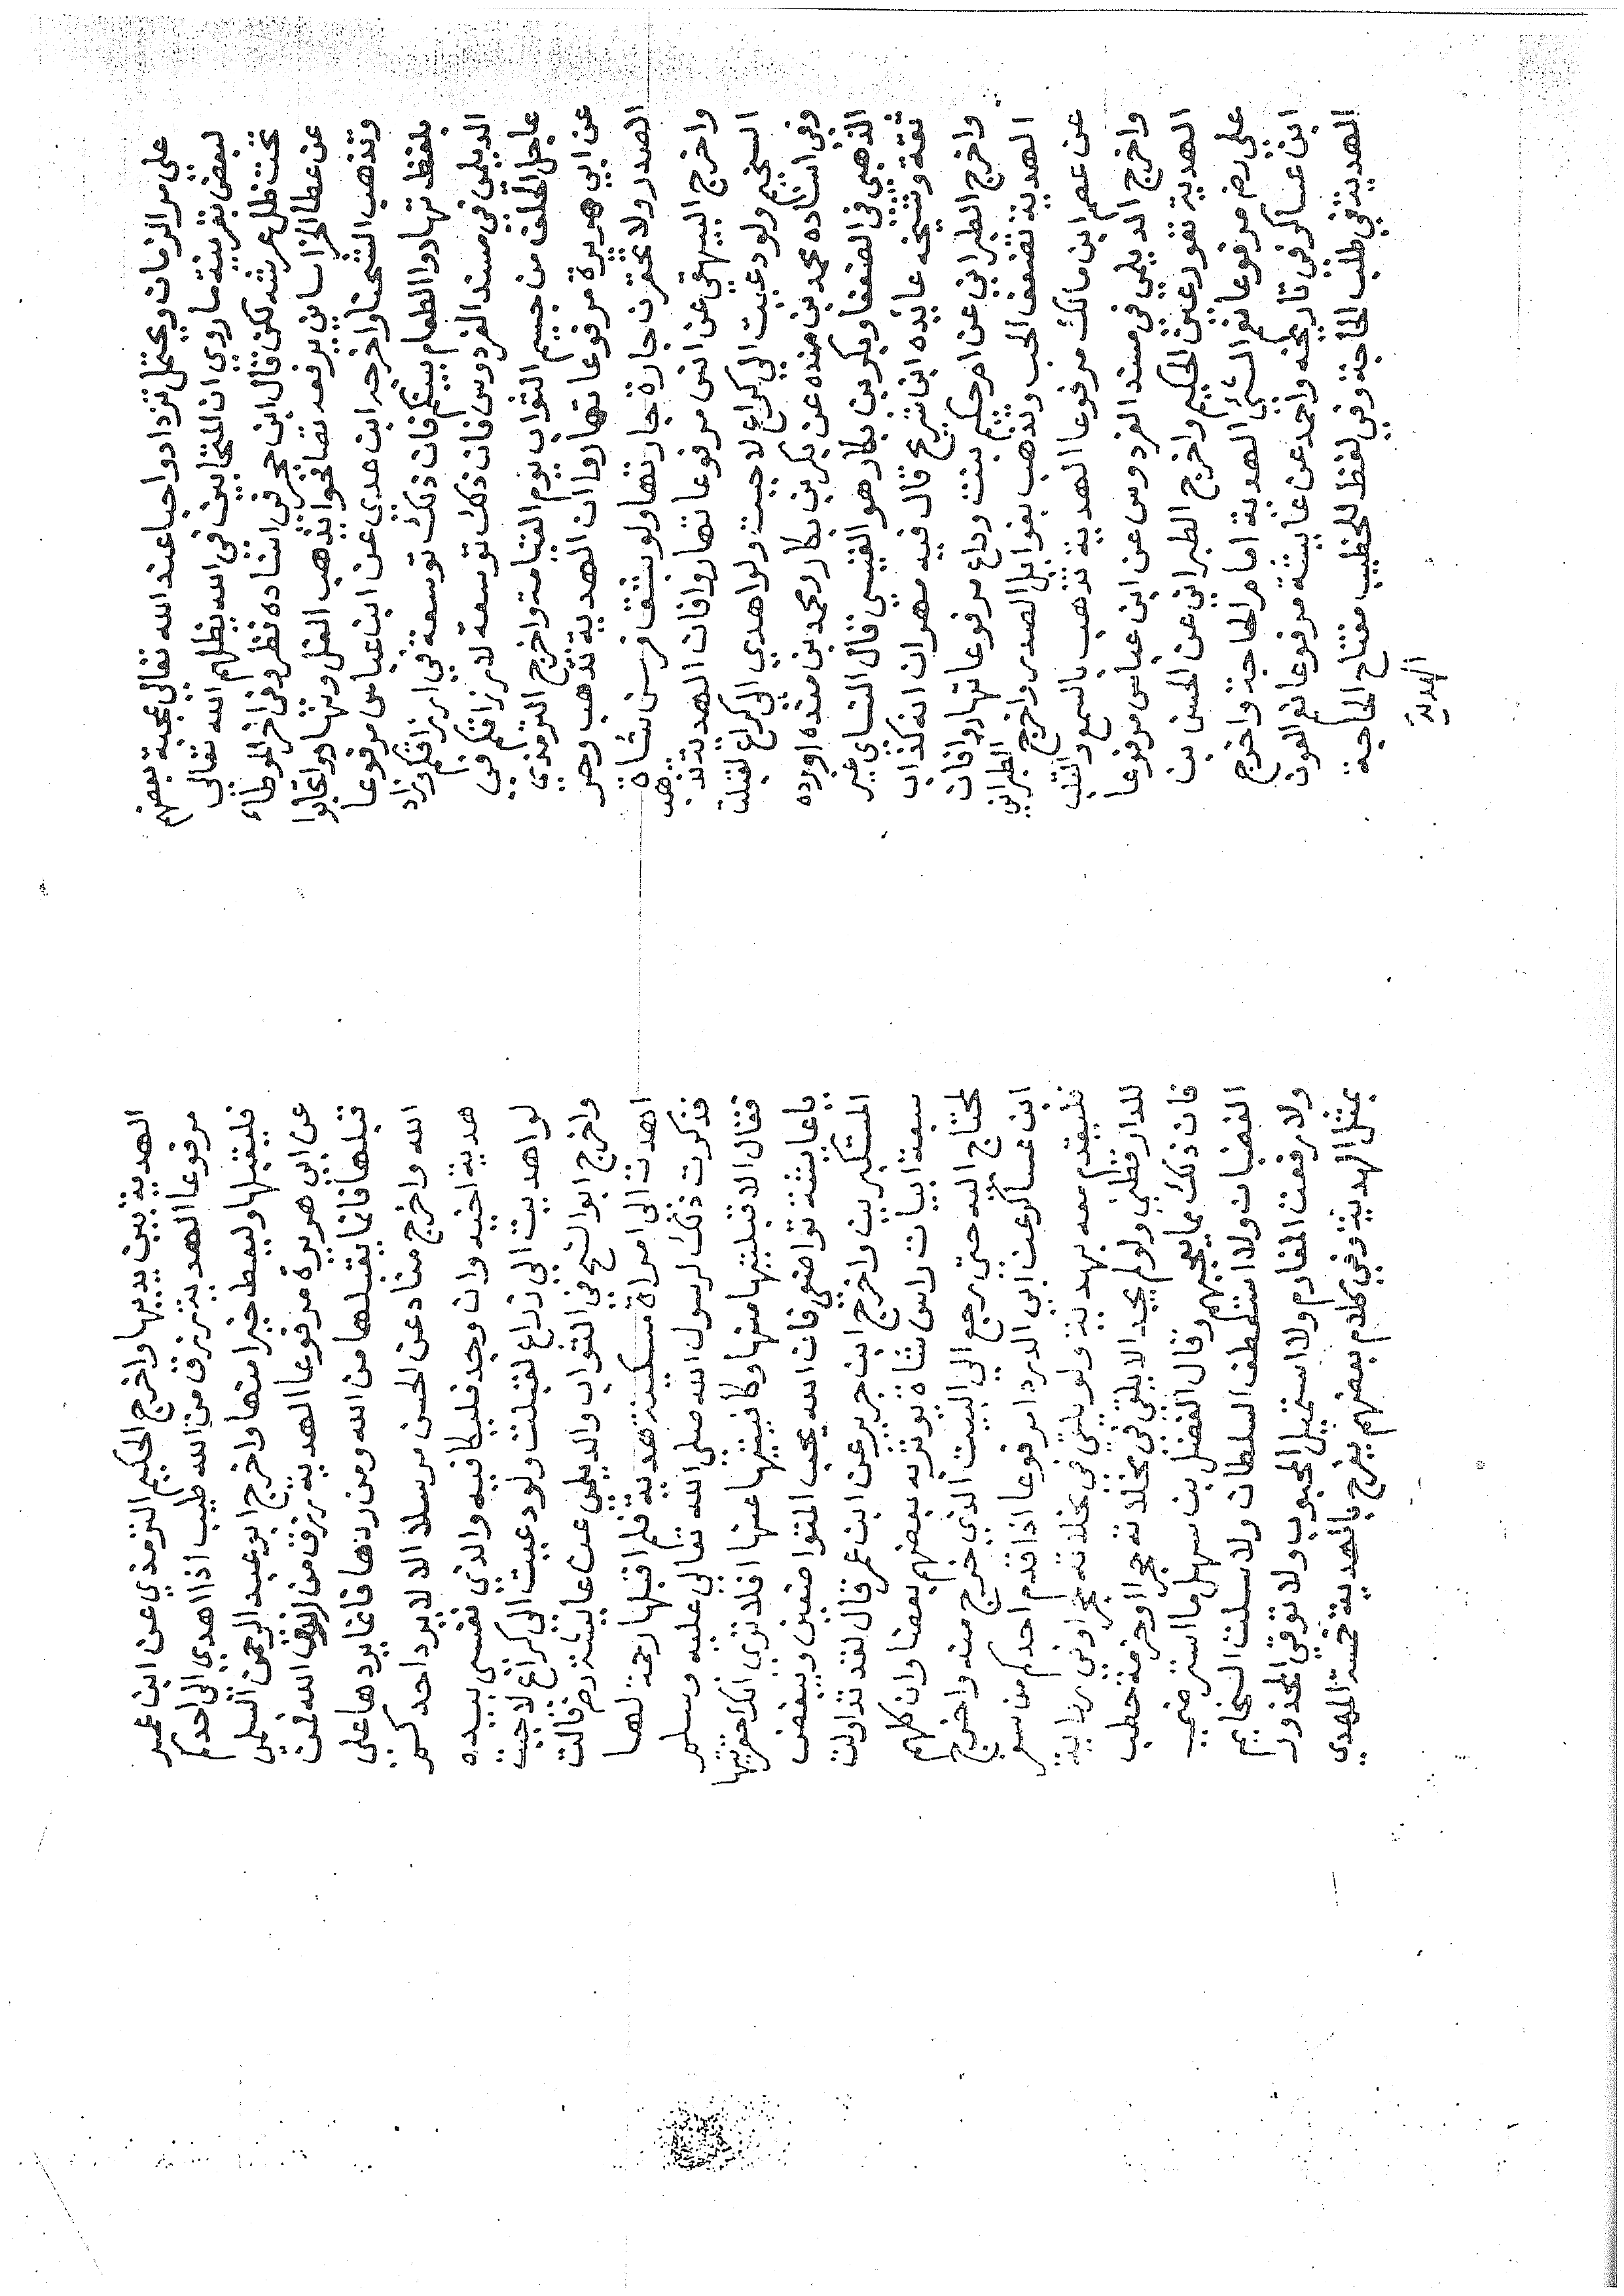 على مر الزمان ويحتمل تزدادوا حبا عند الله تعالى لمحبة بعضهم
لبعض بقرينة ما روي ان المتحابين في الله يظلهم الله تعالى
تحت ظل عرشه لكن قال ابن حجر في اسناده نظر وفي اخر الموطاء
عن عطا الخراساني يرفعه تصافحوا يذهب الغل وتهادوا تحابوا
وتذهب الشحنا واخرجه ابن عدي عن ابن عباس مرفوعا
بلفظ تهادوا الطعام بينكم فان ذلك توسعة في ارزاقكم وزاد
الديلمي في مسند الفردوس فان ذلك توسعة لارزاقكم في
عاجل الخلف من جسيم الثواب يوم القيامة واخرج الترمذي
عن ابي هريرة مرفوعا تهادوا ان الهدية تذهب وحر
الصدر ولا تحقرن جارة جارتها ولو بشق فرسن شاة
واخرج البيهقي عن انس مرفوعا تهادوا فان الهدية تذهب
السخيم ولو دعيت الى كراع لاجبت ولو اهدي الي كراع لقبلت
وفي اسناده محمد بن منده عن بكر بن بكار ومحمد بن منده اورده
الذهبي في الضعفا وبكر بن بكار هو القيسي قال النساي غير
ثقة وشيخه عايذ ابن شريح قال فيه مهران انه كذاب
واخرج الطبراني عن ام حكيم بنت وداع مرفوعا تهادوا فان
الهدية تضعف الحب وتذهب بغوايل الصدر واخرج الطبراني
عن عصم ابن مالك مرفوعا الهدية تذهب بالسمع والقلب
واخرج الديلمي في مسند الفردوس عن ابن عباس مرفوعا
الهدية تعور عين الحكيم واخرج الطبراني عن الحسن بن
علي رض مرفوعا نعم الشئ الهدية امام الحاجة واخرج
ابن عساكر في تاريخه واحمد عن عايشة مرفوعا نعم العون
الهدية في طلب الحاجة وفي لفظ للخطيب مفتاح الحاجة
الهدية
الهدية بين يديها واخرج الحكيم الترمذي عن ابن عمر
مرفوعا الهدية رزق من الله طيب اذا اهدي الى احدكم
فليقبلها وليعط خيرا منها واخرج ابو عبد الرحمن السلمي
عن ابي هريرة مرفوعا الهدية رزق من ارزاق الله فمن
قبلها فانما يقبلها من الله ومن ردها فانما يردها على
الله واخرج هناد عن الحسن مرسلا الا لا يرد احدكم
هدية اخيه وان وجد فليكافيه والذي نفسي بيده
لو اهديت الي ذراع لقبلت ولو دعيت الى كراع لاجبت
واخرج ابو الشيخ في الثواب والديلمي عن عايشة رض قالت
اهدت الى امراة مسكينة هدية فلم اقبلها رحمة لها
فذكرت ذلك لرسول الله صلى الله تعالى عليه وسلم
فقال الا قبلتيها منها وكافيتيها عنها افلا ترى انك حقرتيها
يا عايشة تواضعي فان الله يحب المتواضعين ويبغض
المتكبرين واخرج ابن جرير عن ابن عمر قال لقد تداولت
سبعة ابيات راس شاة يوثر به بعضهم بعضا وان كلهم
لمحتاج اليه حتى رجع الى البيت الذي خرج منه واخرج
ابن عساكر عن ابي الدردا مرفوعا اذا قدم احدكم من سفر
فليقدم معه بهدية ولو يلقي في مخلاته حجرا وفي رواية
للدارقطني ولو لم يجد الا يلقي في مخلاته حجرا او حزمة حطب
فان ذلك مما يعجبهم وقال الفضل بن سهل ما استرضي
الغضبان ولا استعطف السلطان ولا سلت السخايم
ولا رفعت المغارم ولا استميل المحبوب ولا توقي المحذور
بمثل الهدية وفي كلام بعضهم يفرح بالهدية خمسة المهدي